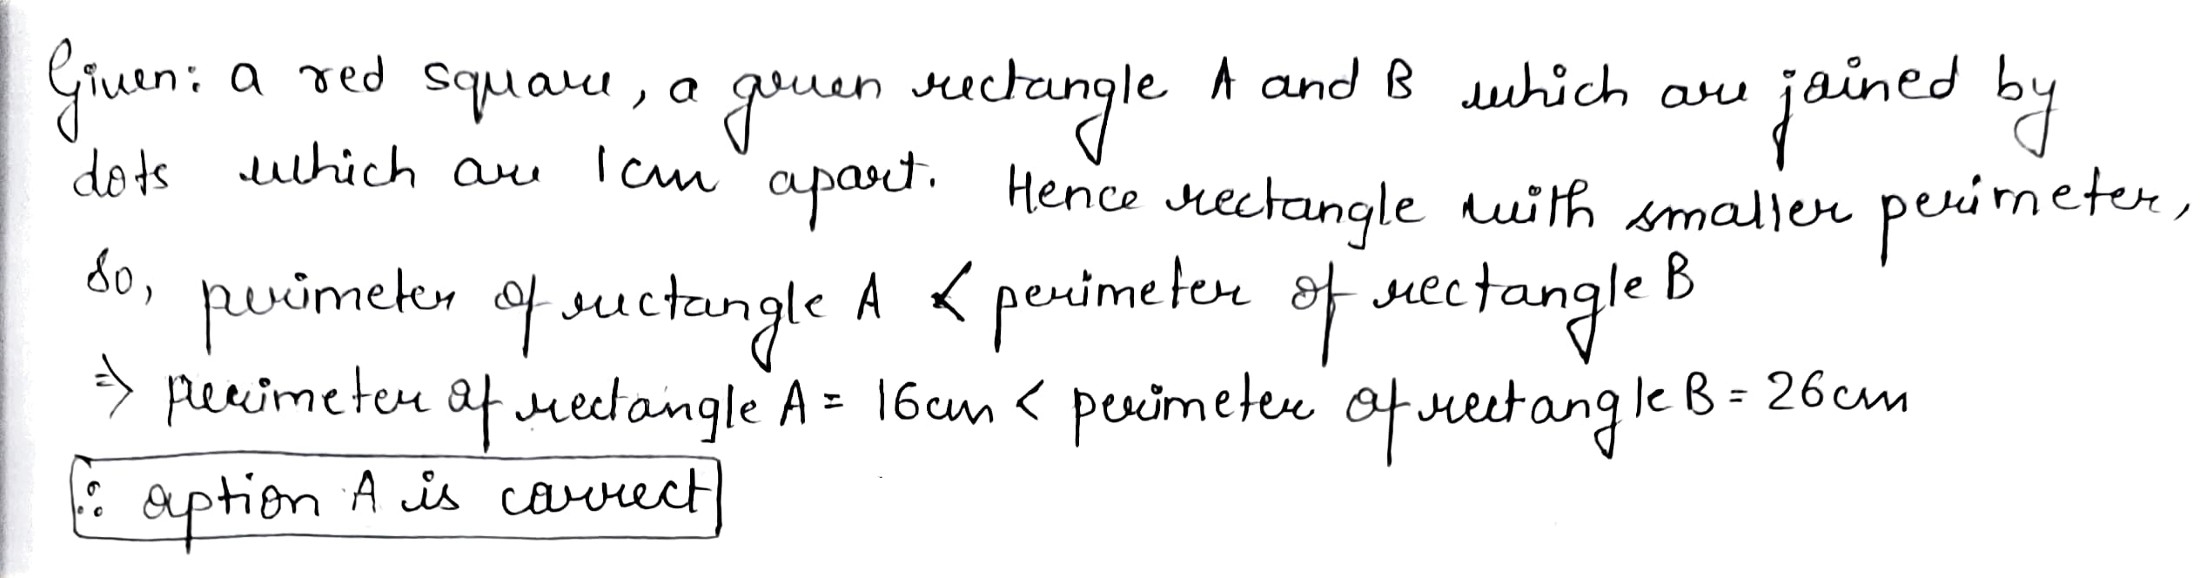 Given: a red square, a green rectangle A and B which are joined by
dots which are 1cm apart. Hence rectangle with smaller perimeter,
So, perimeter of rectangle A < perimeter of rectangle B
⇒ perimeter of rectangle A = 16cm < perimeter of rectangle B = 26cm
∴ option A is correct